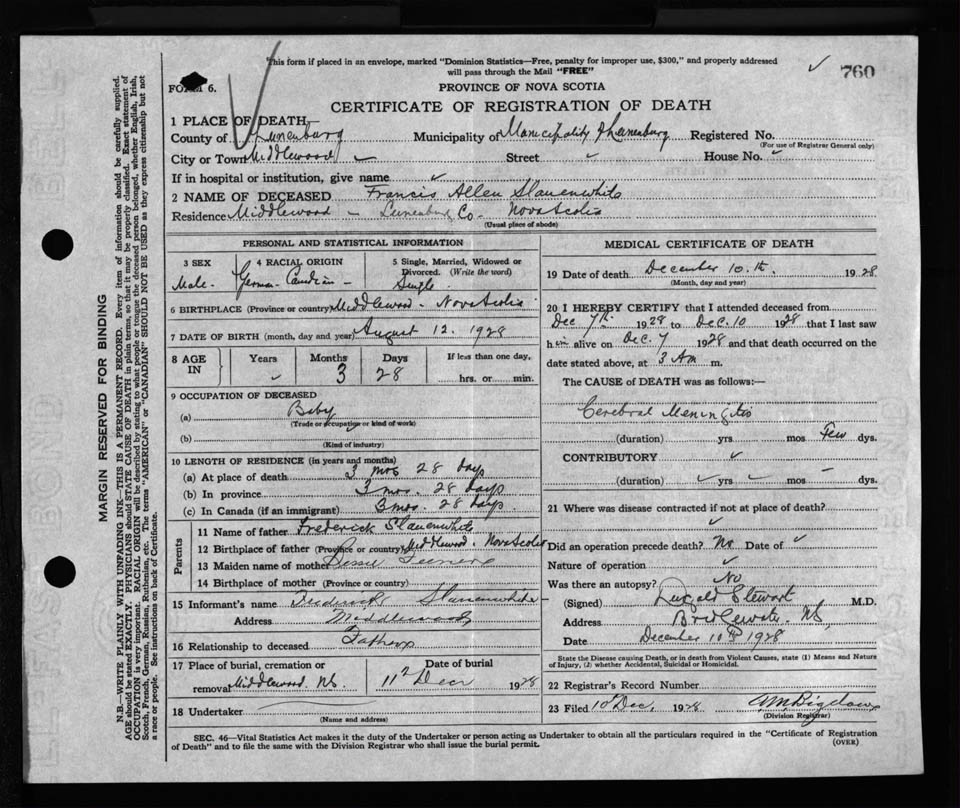 This form if placed in an envelope, marked "Dominion Statistics—Free, penalty for improper use, $300," and properly addressed
will pass through the Mail "FREE"
760
FORM 6.
PROVINCE OF NOVA SCOTIA
CERTIFICATE OF REGISTRATION OF DEATH
1 PLACE OF DEATH
County of Lunenburg Municipality of Municipality Lunenburg Registered No.
(For use of Registrar General only)
City or Town Middlewood Street House No.
If in hospital or institution, give name
2 NAME OF DECEASED Francis Allen Slauenwhite
Residence Middlewood – Lunenburg Co– Nova Scotia
(Usual place of abode)
PERSONAL AND STATISTICAL INFORMATION
3 SEX 4 RACIAL ORIGIN 5 Single, Married, Widowed or
Divorced. (Write the word)
Male- German-Canadian- Single
6 BIRTHPLACE (Province or country) Middlewood- Nova Scotia
7 DATE OF BIRTH (month, day and year) August 12. 1928
8 AGE IN Years Months Days If less than one day,
3 28 hrs. or min.
9 OCCUPATION OF DECEASED
(a) Baby
(Trade or occupation or kind of work)
(b)
(Kind of industry)
10 LENGTH OF RESIDENCE (in years and months)
(a) At place of death 3 mos 28 days
(b) In province 3 mos. 28 days
(c) In Canada (if an immigrant) 3 mos. 28 days
Parents
11 Name of father Frederick Slauenwhite
12 Birthplace of father (Province or country) Middlewood- Nova Scotia
13 Maiden name of mother Bessie
14 Birthplace of mother (Province or country)
15 Informant's name Frederick Slauenwhite
Address Middlewood
16 Relationship to deceased Father
17 Place of burial, cremation or Date of burial
removal Middlewood, N.S. 11 Decr 1928
18 Undertaker
(Name and address)
MEDICAL CERTIFICATE OF DEATH
19 Date of death December 10.th. 1928
(Month, day and year)
20 I HEREBY CERTIFY that I attended deceased from
Dec 7th 1928 to Dec. 10 1928 that I last saw
him alive on Dec. 7 1928 and that death occurred on the
date stated above, at 3 Am m.
The CAUSE OF DEATH was as follows:—
Cerebral Meningitis
(duration) yrs. mos Few dys.
CONTRIBUTORY
(duration) yrs mos dys.
21 Where was disease contracted if not at place of death?
Did an operation precede death? No Date of
Nature of operation
Was there an autopsy? No
(Signed) Dugald Stewart M.D.
Address Bridgewater, N.S.
Date December 10th 1928
State the Disease causing Death, or in death from Violent Causes, state (1) Means and Nature
of Injury, (2) whether Accidental, Suicidal or Homicidal.
22 Registrar's Record Number
23 Filed 10 Dec, 1928
(Division Registrar)
SEC. 46—Vital Statistics Act makes it the duty of the Undertaker or person acting as Undertaker to obtain all the particulars required in the "Certificate of Registration
of Death" and to file the same with the Division Registrar who shall issue the burial permit.
(OVER)
MARGIN RESERVED FOR BINDING
N.B.—WRITE PLAINLY WITH UNFADING INK—THIS IS A PERMANENT RECORD. Every item of information should be carefully supplied.
AGE should be stated EXACTLY. PHYSICIANS should STATE CAUSE OF DEATH in plain terms, so that it may be properly classified. Exact statement of
OCCUPATION is very important. RACIAL ORIGIN will be described by stating to what people or tongue the deceased person belonged, whether English, Irish,
Scotch, French, German, Russian, Ruthenian, etc. The terms "AMERICAN" or "CANADIAN" SHOULD NOT BE USED as they express citizenship but not
a race or people. See instructions on back of Certificate.